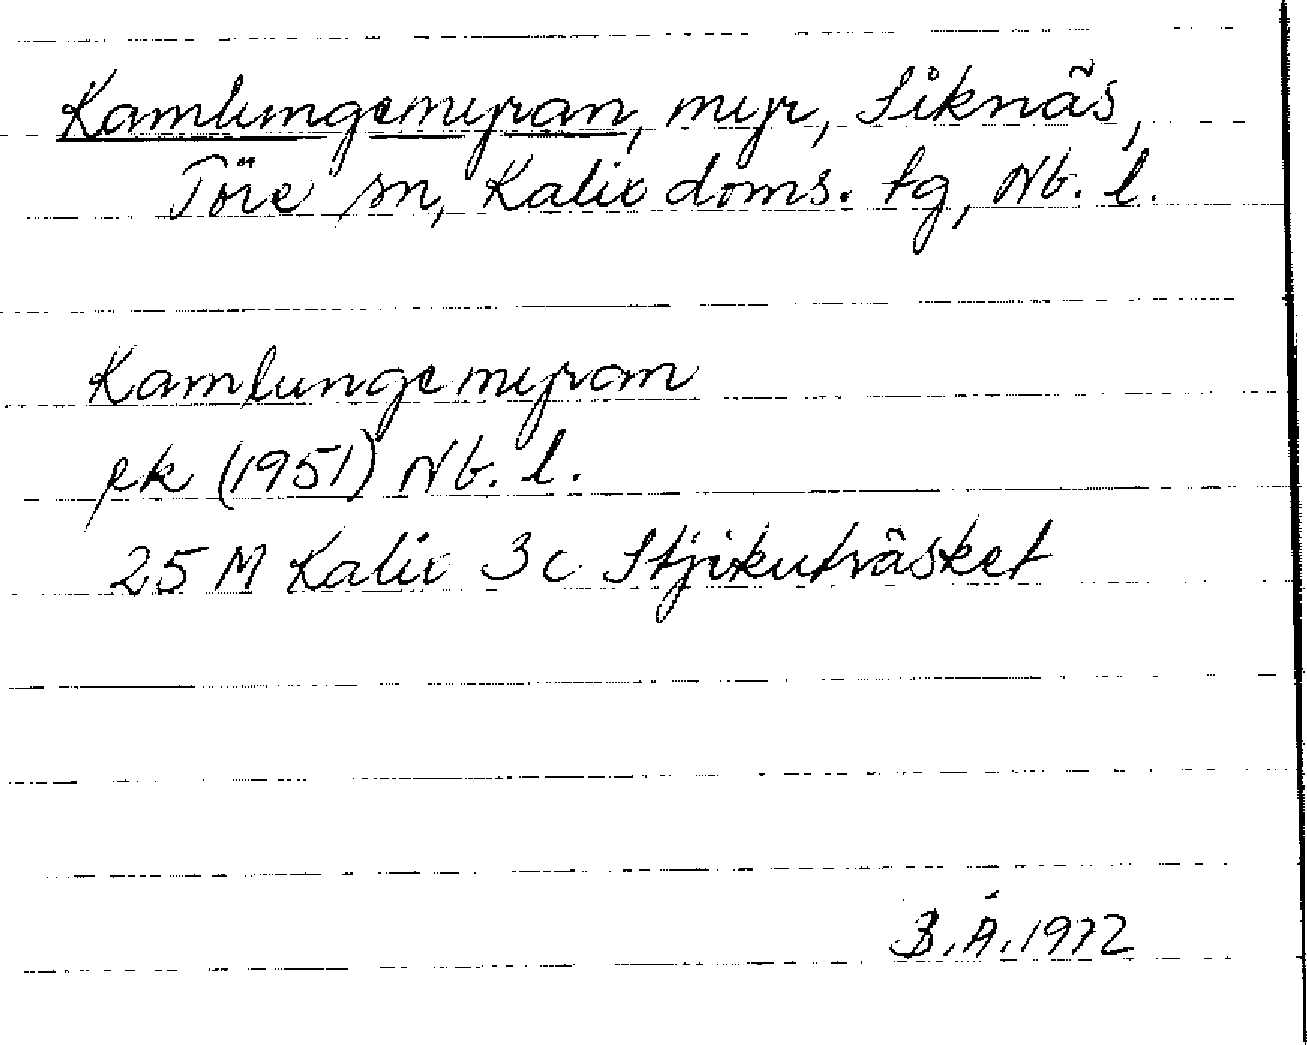 Kamlungemyran, myr, Siknäs,
Töre sn, Kalix doms. tg, Nb. l.
Kamlungemyran
ek (1951) Nb. l.
25 M Kalix 3c Stjikuträsket
B.Å.1972